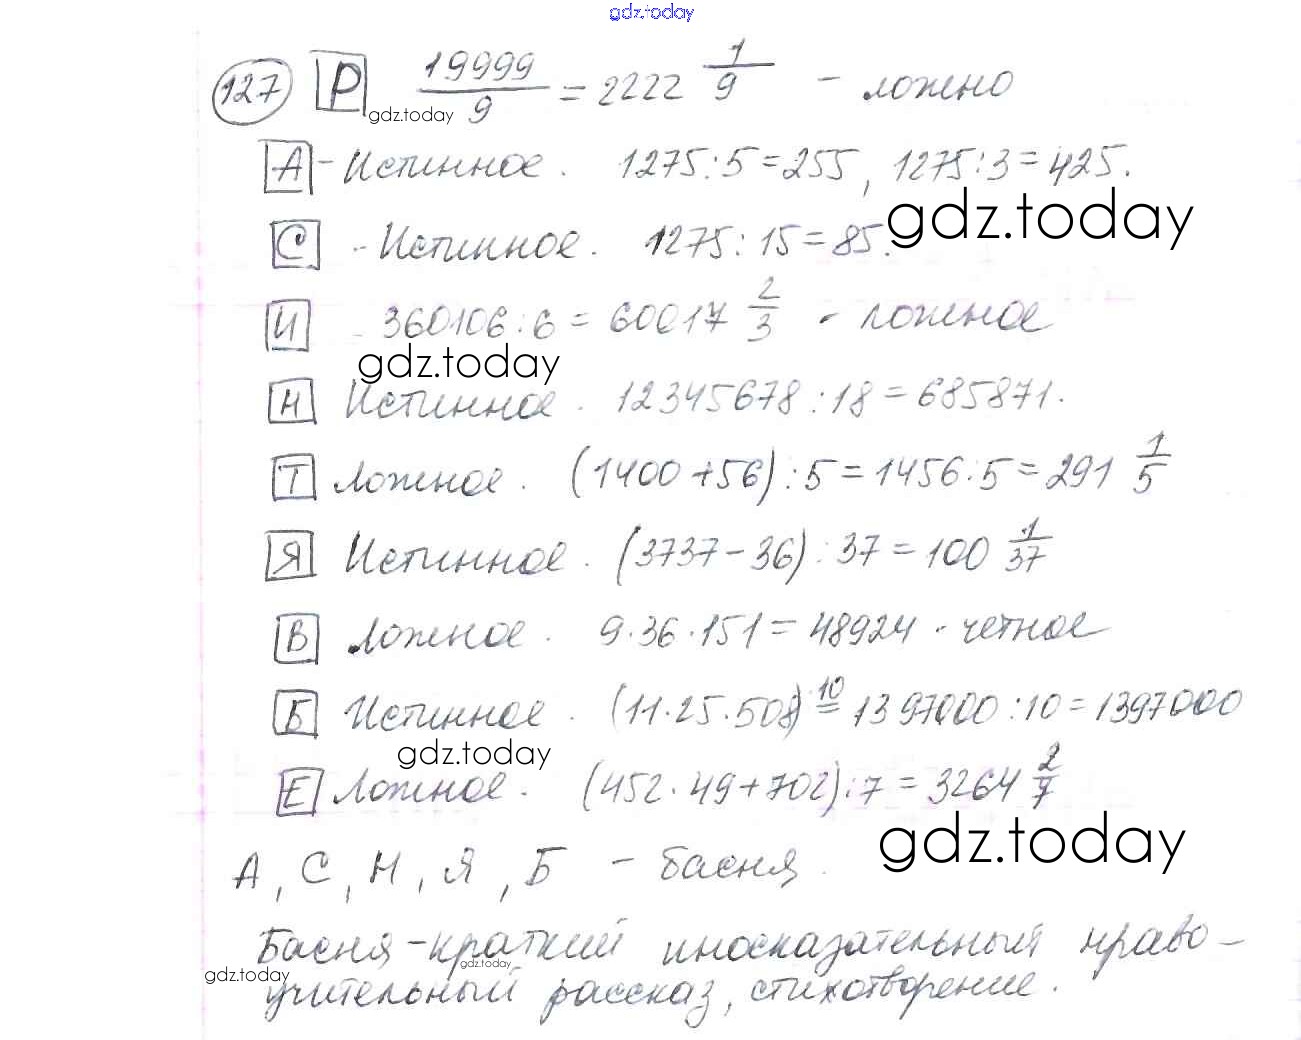 gdz.today
127 Р 19999/9 = 2222 1/9 - ложно
gdz.today
А - Истинное. 1275:5=255, 1275:3=425.
gdz.today
С - Истинное. 1275:15=85.
И 360106:6=60017 2/3 - ложное
gdz.today
Н Истинное. 12345678:18=685871.
Т Ложное. (1400+56):5=1456:5=291 1/5
Я Истинное. (3737-36):37=100 1/37
В Ложное. 9·36·151=48924 - четное
Б Истинное. (11·25·508) 10= 1397000:10=1397000
gdz.today
Е Ложное. (452·49+702):7=3264 2/7
gdz.today
А, С, Н, Я, Б - басня.
Басня - краткий иносказательный нраво-
gdz.today
gdz.today
учительный рассказ, стихотворение.